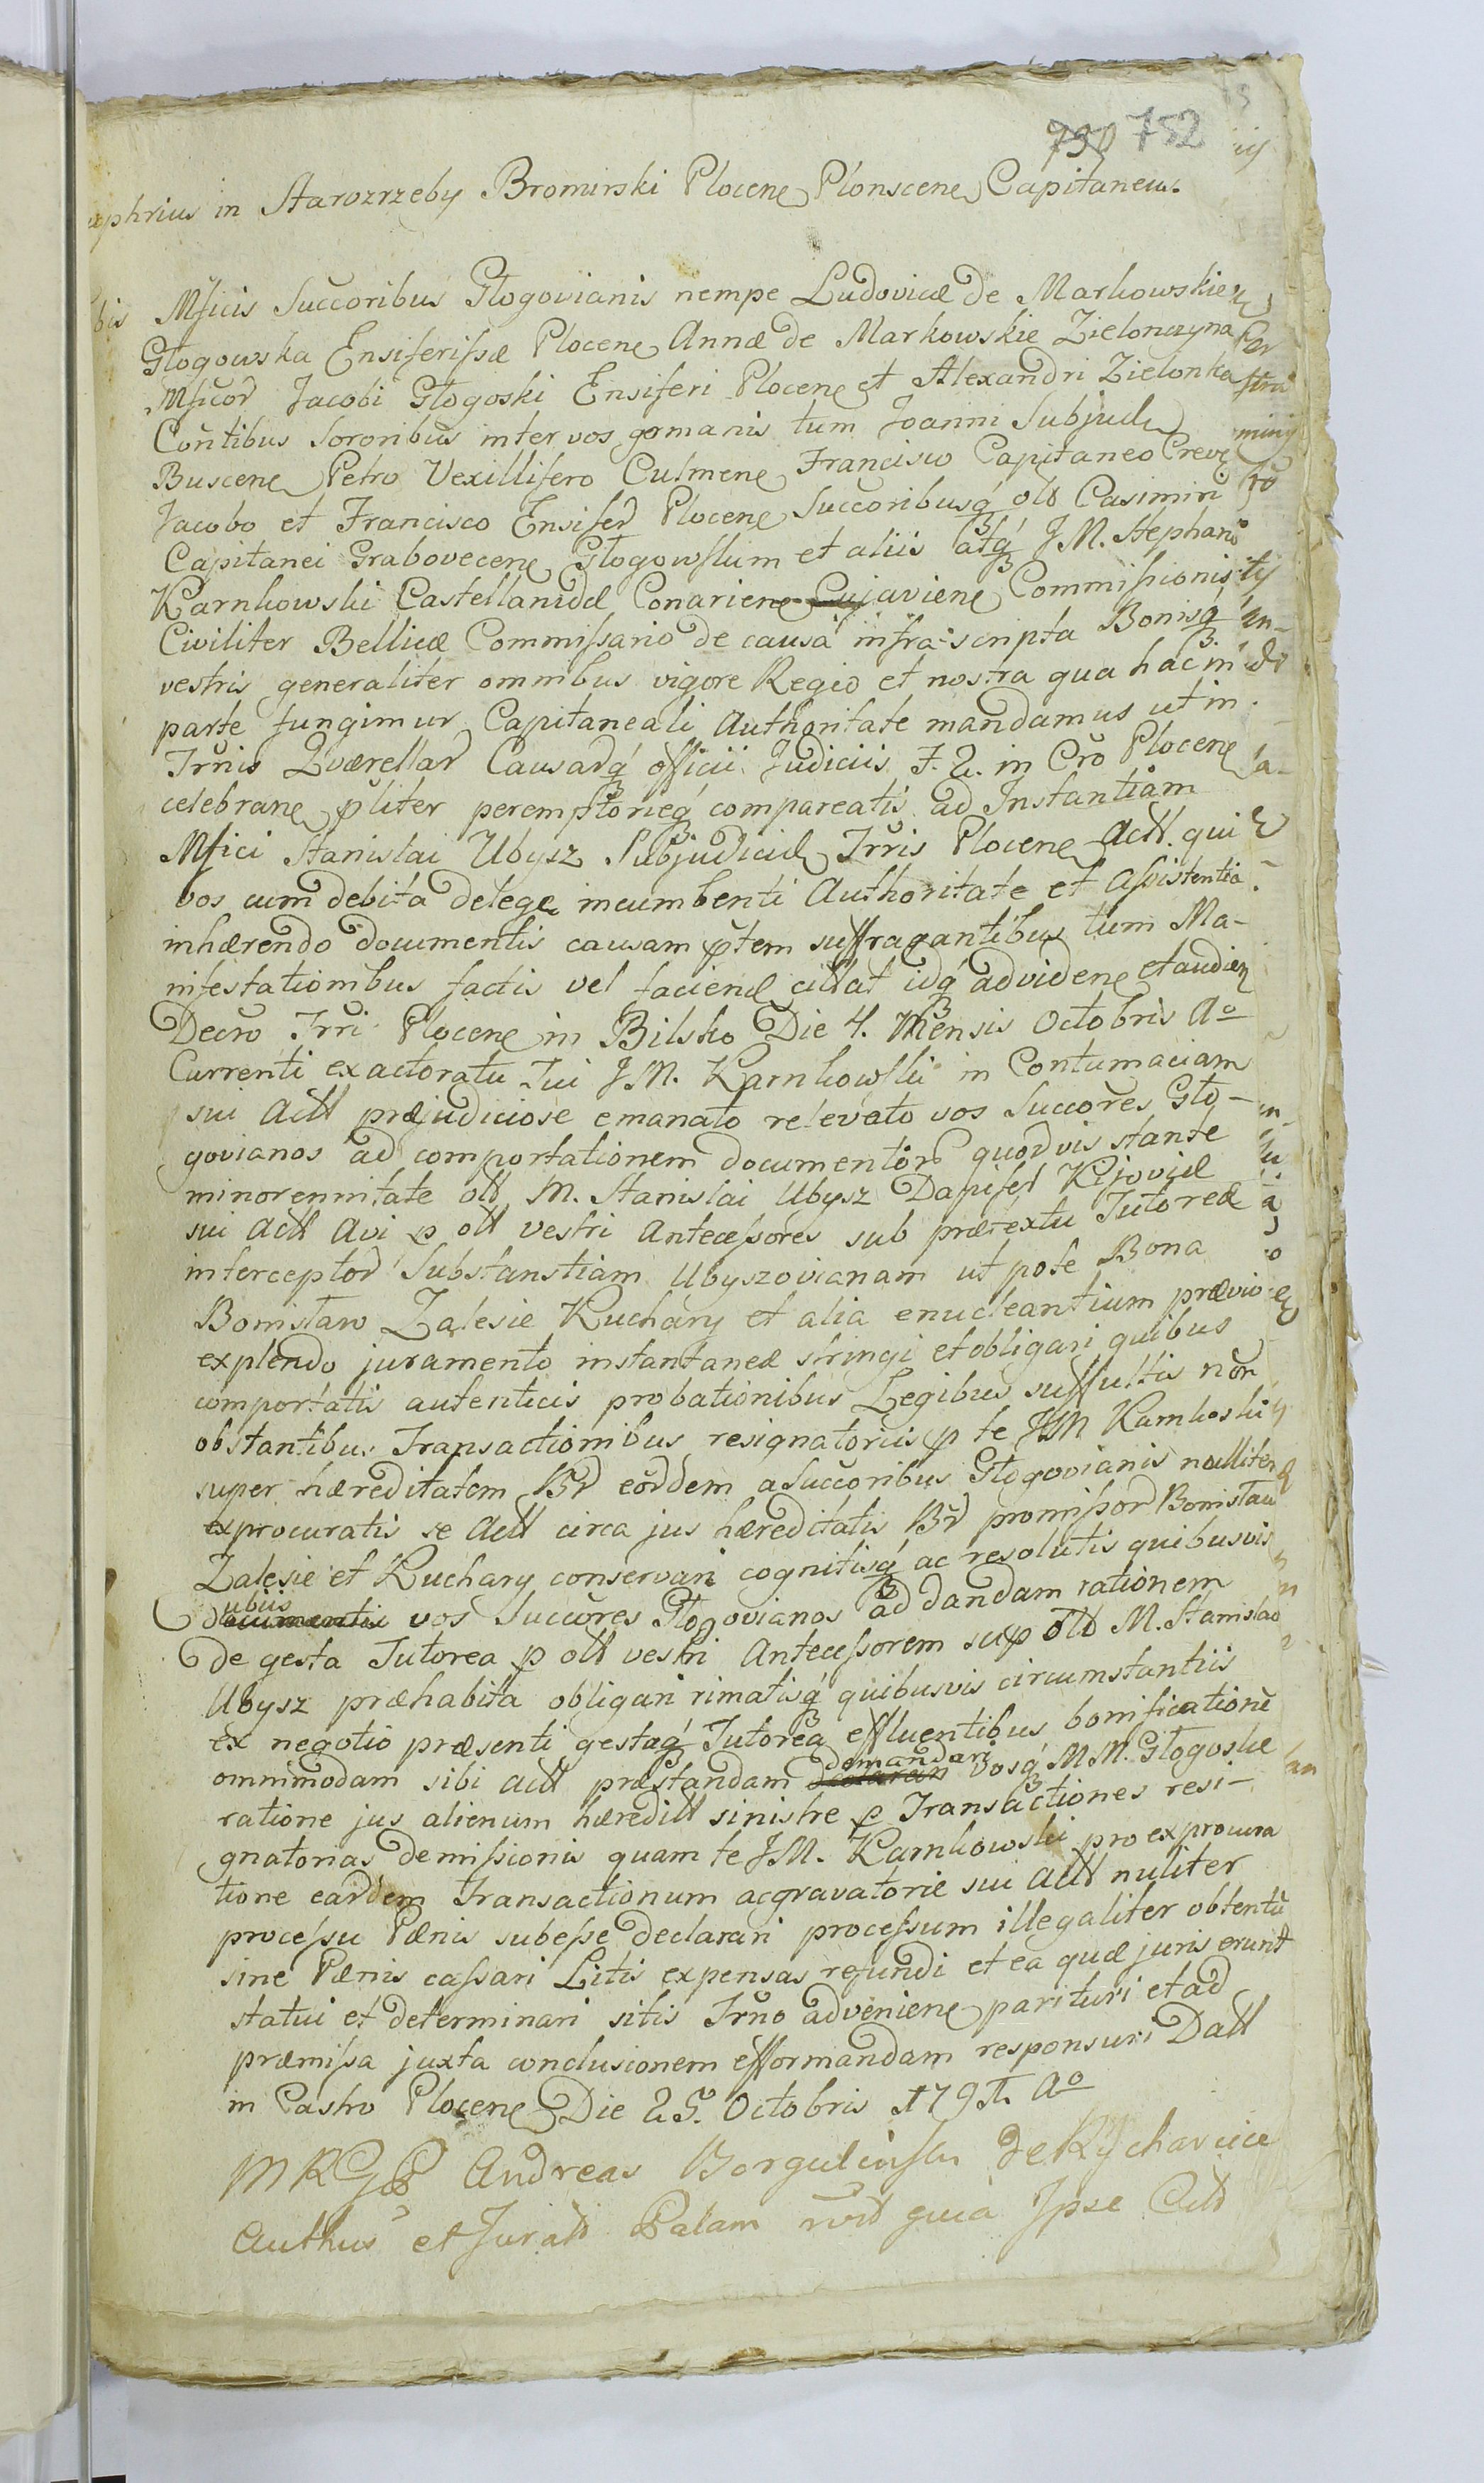 730 752
phrius in Starozrzeby Bromirski Plocene Plonscene Capitaneus
bis Mficis Succoribus Głogovianis nempe Ludovicæ de Markowskie
Głogowska Ensiferissæ Plocene Annæ de Markowskie Zielonczyna
Mficor Jacobi Głogoski Ensiferi Plocene et Alexandri Zielonka
Contibus Sororibus inter vos germanis tum Joanni Subjud
Buscene Petro Vexillifero Culmene Francisco Capitaneo
Jacobo et Francisco Ensifer Plocene Succoribusq olb Casimiri
Capitanei Grabovecene Głogowskim et aliis atq JM. Stephano
Karnkowski Castellanidæ Conariene Cujaviene Commissionis
Civiliter Bellicæ Commissario de causa infra-scripta Bonisq
vestris generaliter omnibus vigore Regio et nostra qua hac in
parte fungimur Capitaneali Authoritate mandamus ut in
Trnis Quærellar Causarq officii Judiciis F. 2. in Cro Plocene
celebrane pliter peremptorieq compareatis ad Instantiam
Mfici Stanislai Ubysz Subjudicid Trris Plocene Actt. qui
vos cum debita delege incumbenti Authoritate et Assistentia
inhærendo documentis causam ptem suffragantibus tum Ma-
nifestationibus factis vel faciend cittat idq ad videne et audien
Decro Trri Plocene in Bilsko Die 4. Mensis Octobris Ao
Currenti exactoratu Tui JM. Karnkowski in Contumaciam
sui Actt præjudiciose emanato relevato vos Succores Gło-
govianos ad comportationem documentor quorvis stante
minorennitate olt M. Stanislai Ubysz Dapiferi Kijoviæ
sui Actt Avi p olt vestri Antecessores sub prætextu Tutoreæ
interceptor Substanstiam Ubyszovianam ut pote Bona
Bonisław Zalesie Kuchary et alia enucleantium prævio
explendo juramento instantaneæ stringi et obligari quibus
comportatis autenticis probationibus Legibus suffultis non
obstantibus Transactionibus resignatoriis p te JM Karnkoski
super hæreditatem Br eordem a Succoribus Głogovianis nulliter
exprocuratis se Actt circa jus hæreditatis Br promissor Bonisław
Zalesie et Kuchary conservari cognitisq ac resolutis quibusvis
ubiis
documentis vos Succores Głogovianos ad dandam rationem
De gesta Tutorea p olt vestri Antecessorem sup olb M. Stanislao
Ubysz præhabita obligari rimatisq quibusvis circumstantiis
ex negotio præsenti gestaq Tutorea effluentibus bonificatione
demandari
omnimodam sibi Actt præstandam declarari vosq MM. Głogoskie
ratione jus alienum hæreditt sinistre p Transactiones resi-
gnatorias demissionis quam te JM. Karnkowski pro exprocura
tione eardem Transactionum acgravatorie sui Actt nuliter
processu Pænis subesse declarari processum illegaliter obtentu
sine Pænis cassari Litis expensas refundi et ea quæ juris erunt
statui et determinari sitis Trno adveniene parituri et ad
præmissa juxta conclusionem efformandam responsuri Datt
in Castro Plocene Die 25. Octobris 1791. Ao
MRGP Andreas
Authus et Jurato Palam quia Ipse Actt